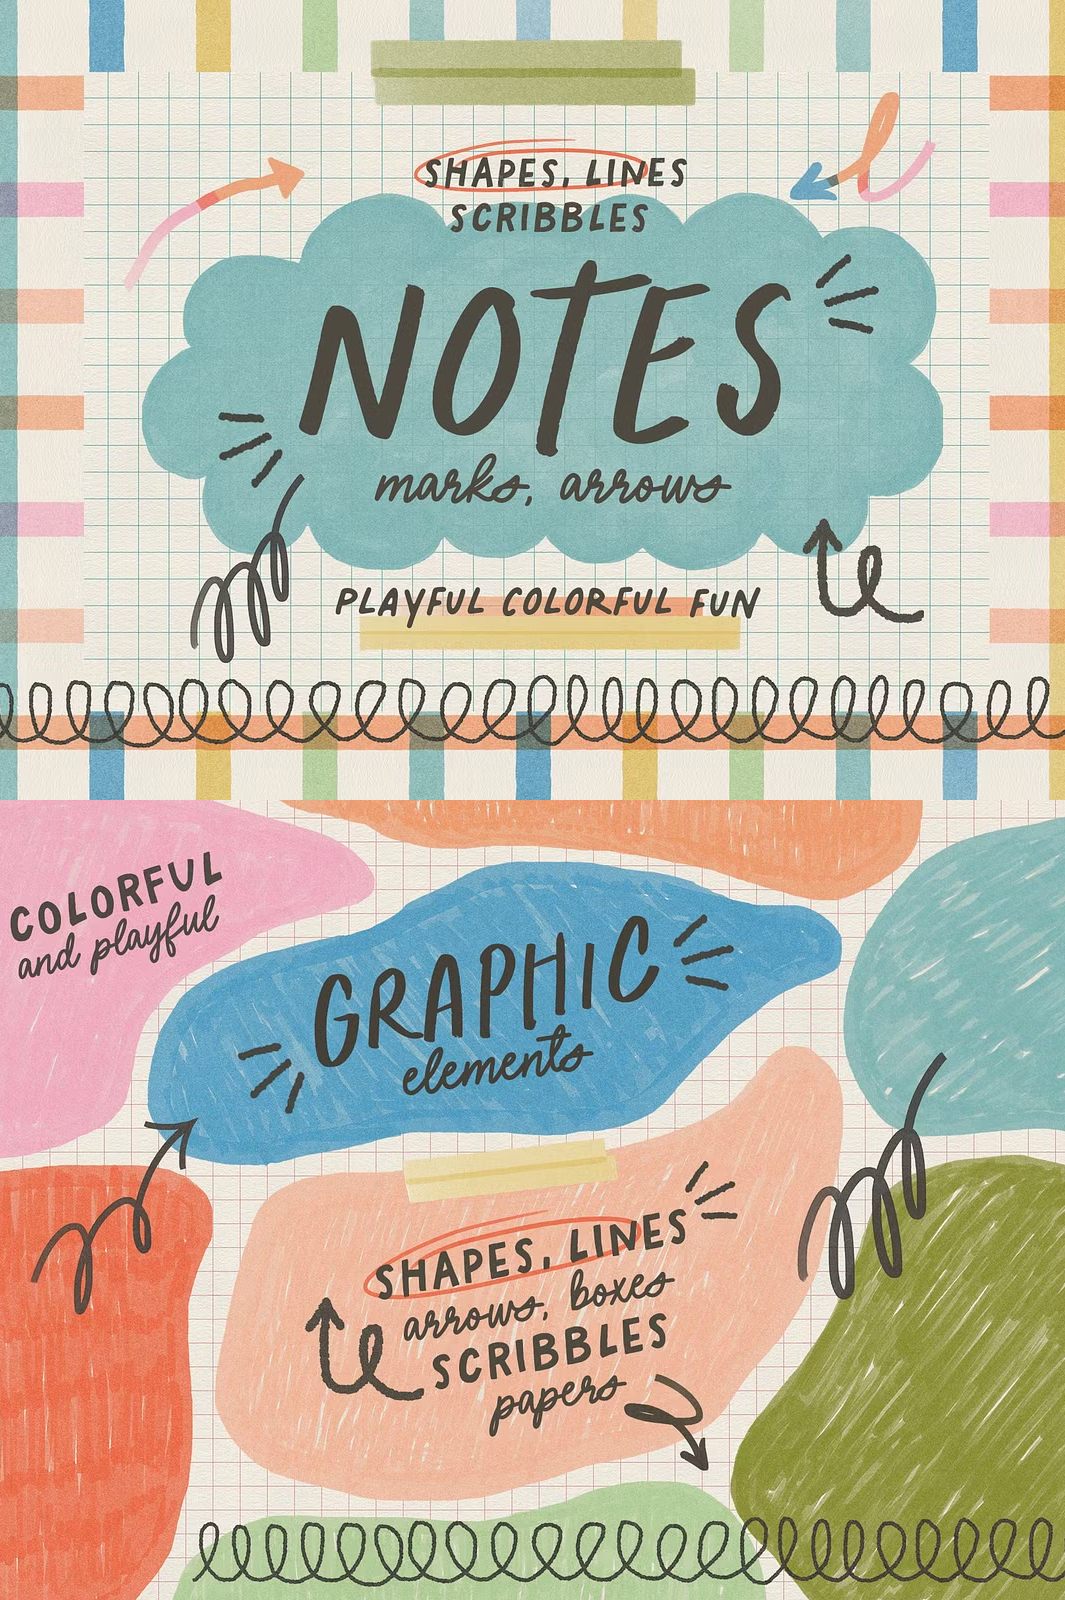 SHAPES, LINES
SCRIBBLES
NOTES
marks, arrows
PLAYFUL COLORFUL FUN
COLORFUL
and playful
GRAPHIC
elements
SHAPES, LINES
arrows, boxes
SCRIBBLES
papers